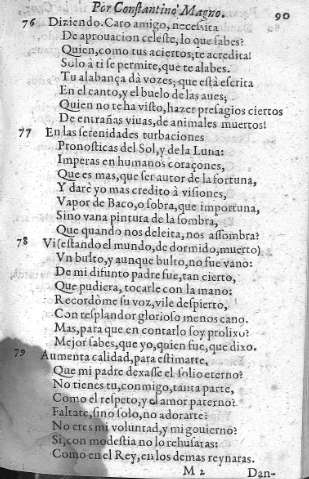 Por Constantino Magno. 90
76 Diziendo. Caro amigo, necessita
De aprouacion celeste, lo que sabes?
Quien, como tus aciertos, te acredita!
Solo à ti se permite, que te alabes.
Tu alabança dà vozes, que està escrita
En el canto, y el buelo de las aues;
Quien no te ha visto, hazer presagios ciertos
De entrañas viuas, de animales muertos!
77 En las serenidades turbaciones
Pronosticas del Sol, y de la Luna:
Imperas en humanos coraçones,
Que es mas, que ser autor de la fortuna,
Y darè yo mas credito à visiones,
Vapor de Baco, o sobra, que importuna,
Sino vana pintura de la sombra,
Que quando nos deleita, nos assombra?
78 Vi (estando el mundo, de dormido, muerto)
Vn bulto, y aunque bulto, no fue vano:
De mi difunto padre fue, tan cierto,
Que pudiera, tocarle con la mano:
Recordòme su voz, vile despierto,
Con resplandor glorioso menos cano.
Mas, para que en contarlo soy prolixo?
Mejor sabes, que yo, quien fue, que dixo.
79 Aumenta calidad, para estimarte,
Que mi padre dexasse el solio eterno?
No tienes tu, conmigo, tanta parte,
Como el respeto, y el amor paterno?
Faltate, sino solo, no adorarte?
No eres mi voluntad, y mi gouierno?
Si, con modestia no lo rehusaras:
Como en el Rey, en los demas reynaras.
M 2 Dan-